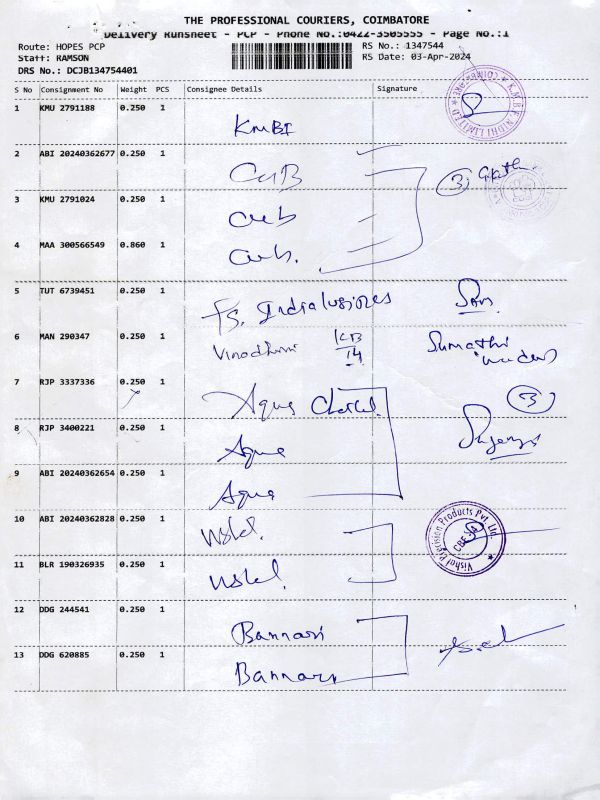 THE PROFESSIONAL COURIERS, COIMBATORE
Delivery Runsheet - PCP - Phone No.:0422-3505555 - Page No.:1
Route: HOPES PCP
RS No.: 1347544
Staff: RAMSON
RS Date: 03-Apr-2024
DRS No.: DCJB134754401
S No Consignment No Weight PCS Consignee Details Signature
1 KMU 2791188 0.250 1 KMBI
2 ABI 20240362677 0.250 1 CUB
3
3 KMU 2791024 0.250 1 Cub
4 MAA 300566549 0.860 1 Cub.
5 TUT 6739451 0.250 1 FS.
6 MAN 290347 0.250 1 Vinodhini Sumathi
7 RJP 3337336 0.250 1 Aqua
3
8 RJP 3400221 0.250 1 Aqua
9 ABI 20240362654 0.250 1 Aqua
10 ABI 20240362828 0.250 1
Vishal Precision Products Pvt. Ltd.
11 BLR 190326935 0.250 1
12 DDG 244541 0.250 1 Bannari
13 DDG 620885 0.250 1 Bannari